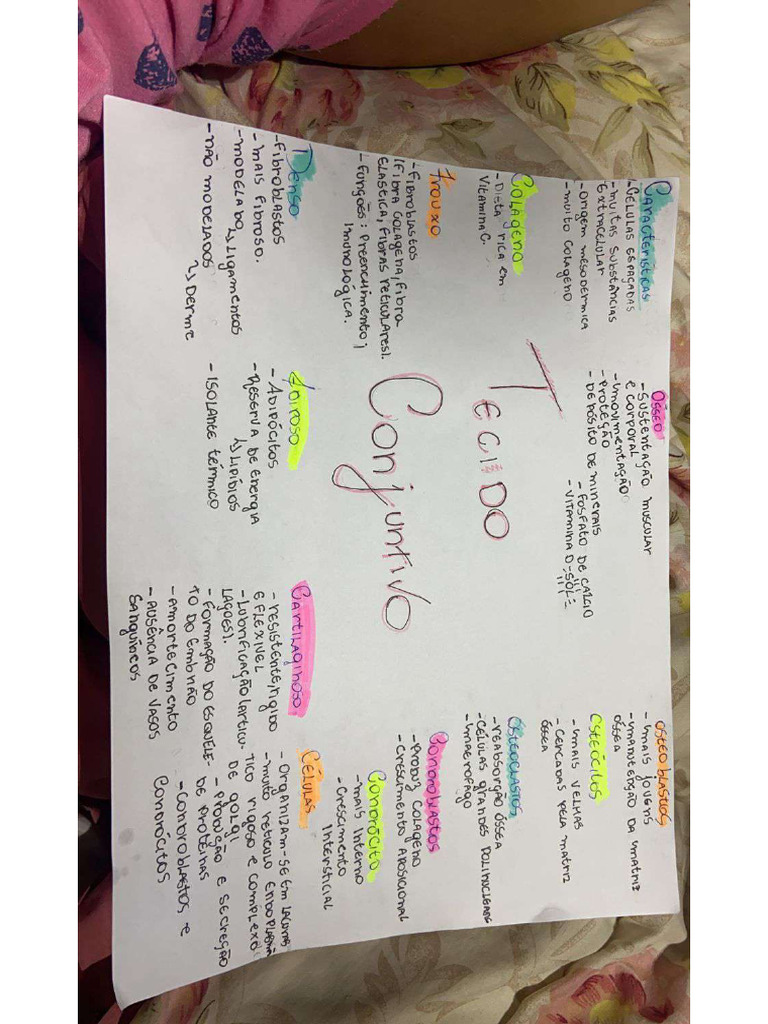 Características
- CÉLULAS ESPAÇADAS
- muitas substâncias
Extracelular
- origem mesodermica
- muito colageno
COLÁGENO
- Dieta rica em
Vitamina C.
Frouxo
- Fibroblastos
(Fibra colagena, Fibra
Elastica, Fibras reticulares).
- Funções: Preenchimento;
Imunológica.
Denso
- Fibroblastos
- mais fibroso.
- modelado
↳ Ligamentos
- não modelados
↳ Derme
TECIDO
Conjuntivo
Ósseo
- Sustentação muscular
e corporal
- movimentação
- Proteção
- Depósito de minerais
- Fosfato de cálcio
- Vitamina D - SOL
Adiposo
- Adipócitos
- Reserva de energia
↳ Lipídios
- Isolante térmico
Cartilaginoso
- resistente, rígido
e flexivel
- Lubrificação (articu-
lações).
- Formação do esquele-
to do embrião
- amortecimento
- ausência de vasos
sanguíneos
Osteoblastos
- mais jovens
- manutenção da matriz
óssea
Osteócitos
- mais velhas
- cercadas pela matriz
óssea
Osteoclastos
- reabsorção óssea
- células grandes polinucleares
- macrofago
Condroblastos
- Produz colageno
- Crescimento aposicional
Condrócito
- mais interno
- Crescimento
Intersticial
Células
- Organizam-se em lacunas
- muito reticulo endoplasma
tico rugoso e complexo
de golgi
- Produção e secreção
de proteínas
- Condroblastos e
Condrocitos